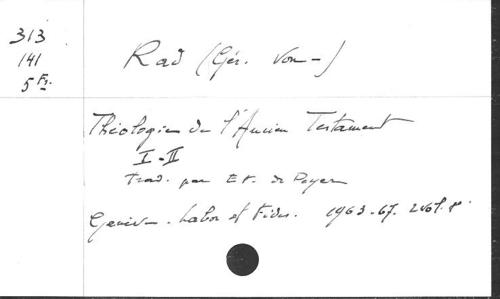 313
141
5 Fr.
Rad (Gér. Von-)
Théologie de l'Ancien Testament
I-II
Trad. par Et. de Peyer
Genève. Labor et Fides. 1963-67. 2 vol. 8°